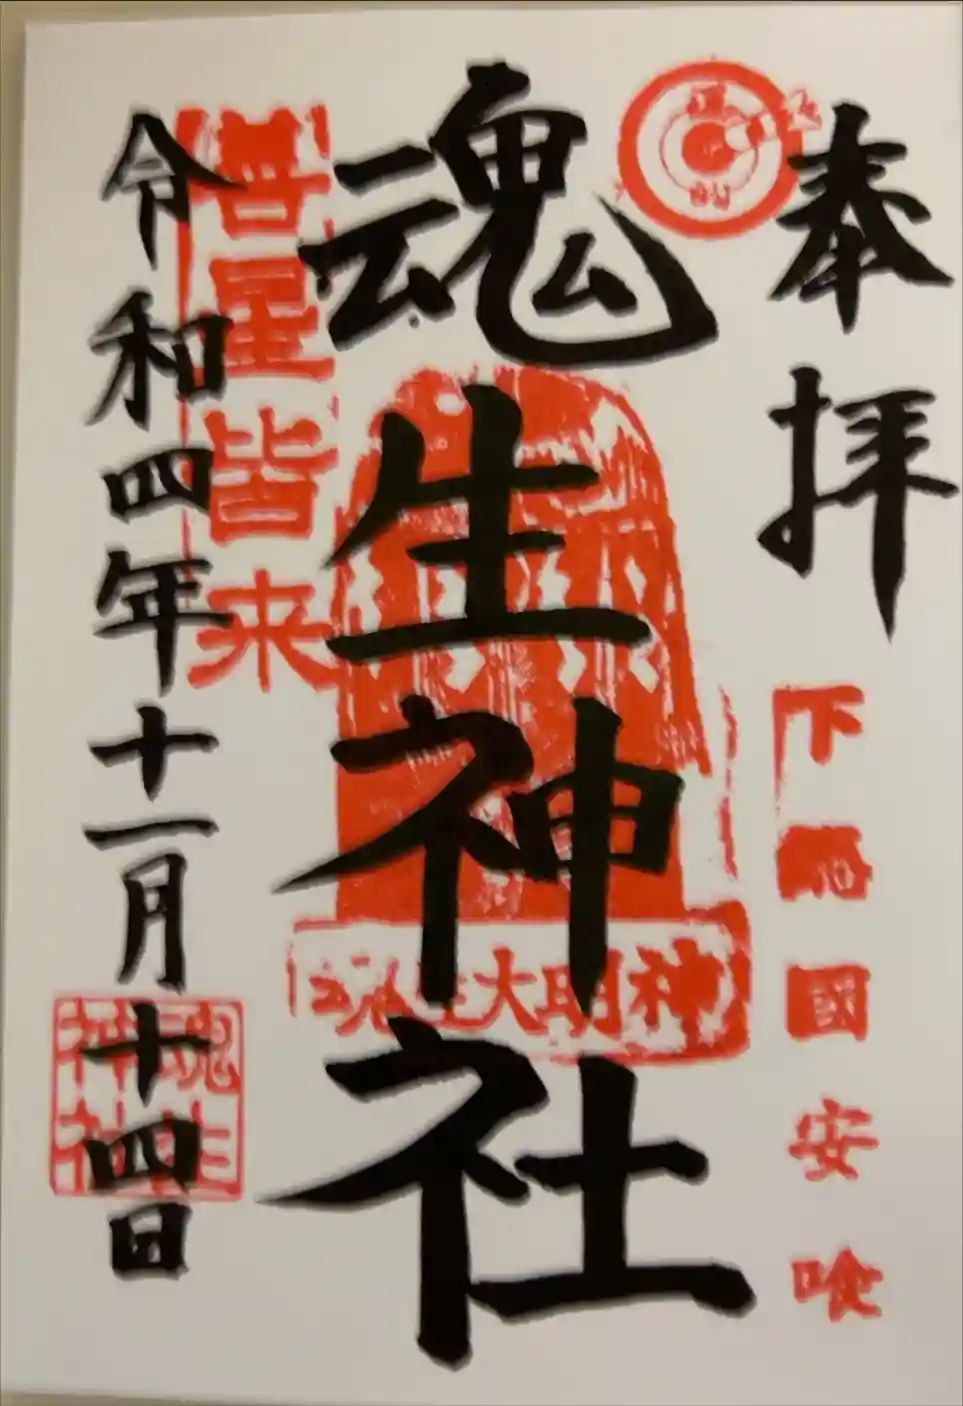 奉拝
下総國安喰
魂生神社
魂生大明神
善星皆来
令和四年十一月十四日
魂生
神社